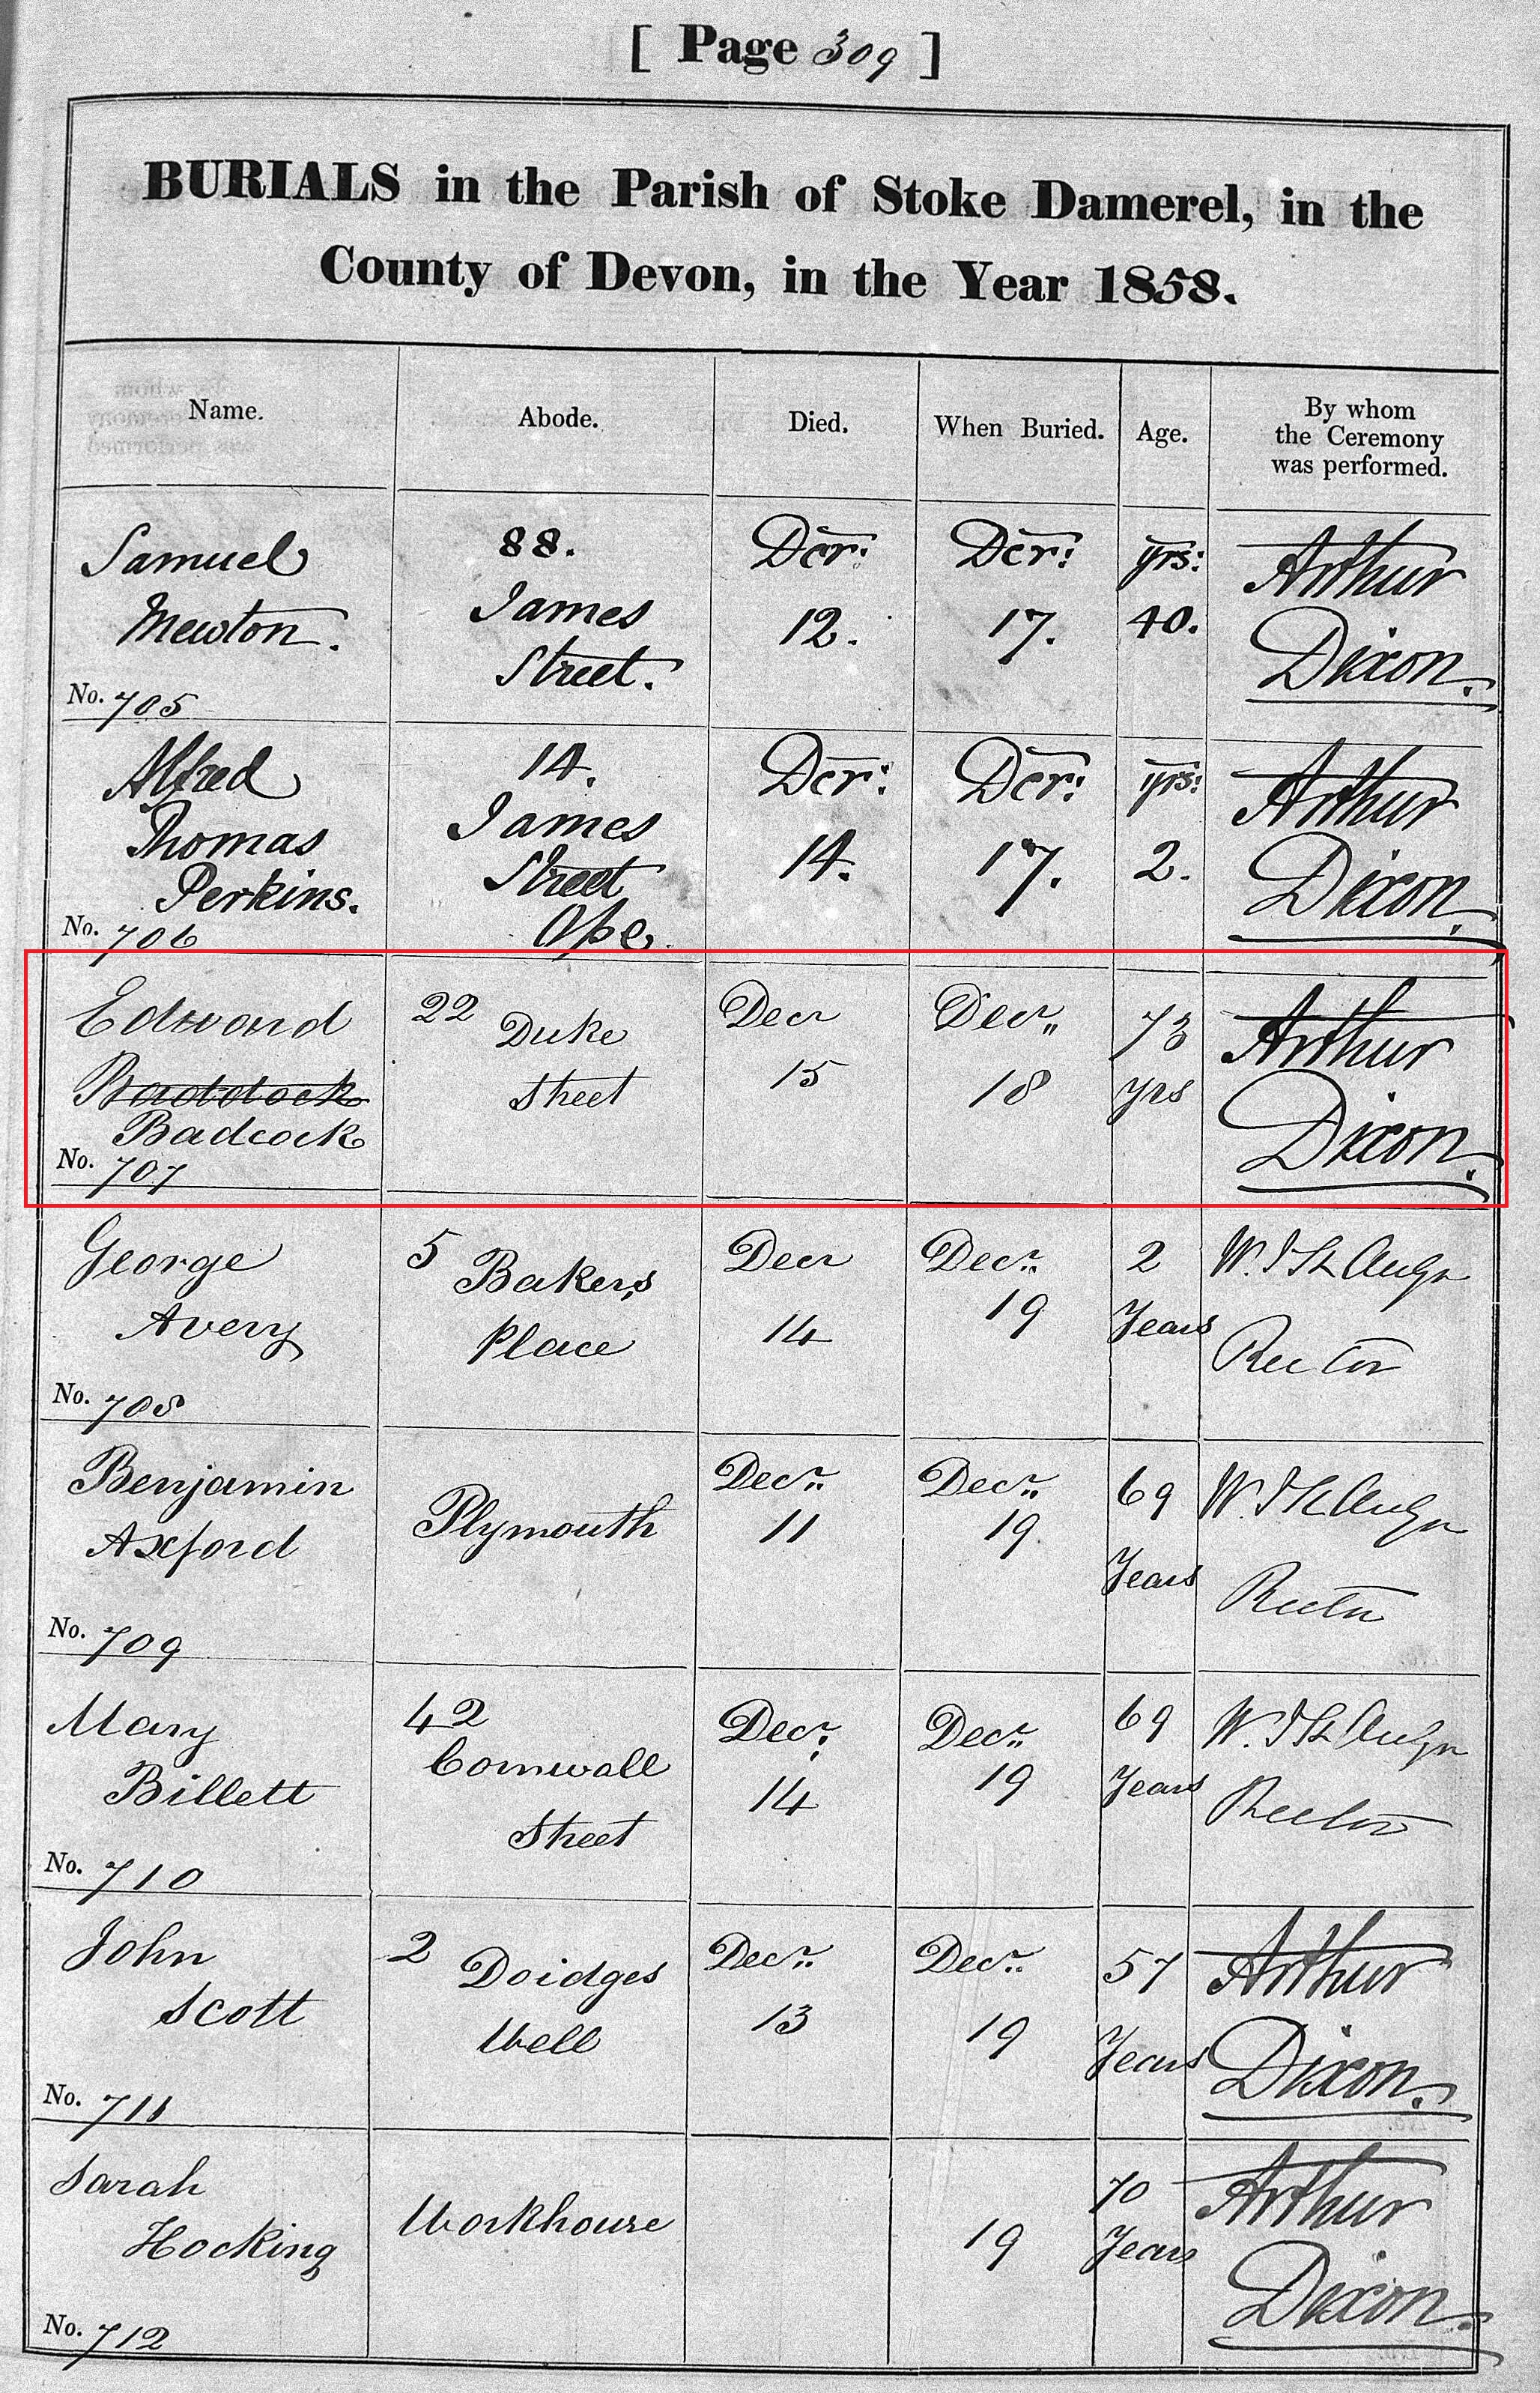 [ Page 309 ]
BURIALS in the Parish of Stoke Damerel, in the
County of Devon, in the Year 1858.
Name. Abode. Died. When Buried. Age. By whom
the Ceremony
was performed.
Samuel 88. Decr: Decr: yrs: Arthur
Mewton. James 12. 17. 40. Dixon.
Street.
No. 705
Alfred 14. Decr: Decr: yrs: Arthur
Thomas James 14. 17. 2. Dixon.
Perkins. Street
No. 706 Ope
Edward 22 Duke Decr Decr 73 Arthur
Braddock Street 15 18 yrs Dixon.
Badcock
No. 707
George 5 Bakers Decr Decr 2
Avery Place 14 19 Years Rector
No. 708
Benjamin Plymouth Decr Decr 69
Axford 11 19 Years Rector
No. 709
Mary 42 Decr Decr 69
Billett Cornwall 14 19 Years Rector
Street
No. 710
John 2 Doidges Decr Decr 57 Arthur
Scott Well 13 19 Years Dixon.
No. 711
Sarah Workhouse 70 Arthur
Hocking 19 Years Dixon.
No. 712